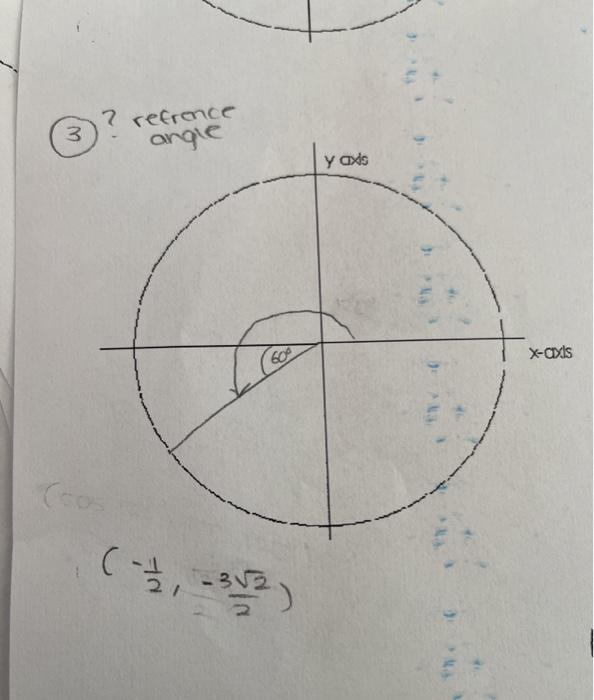 3 ? refrence
angle
y axis
60°
x-axis
(cos
(-1/2, -3√2/2)